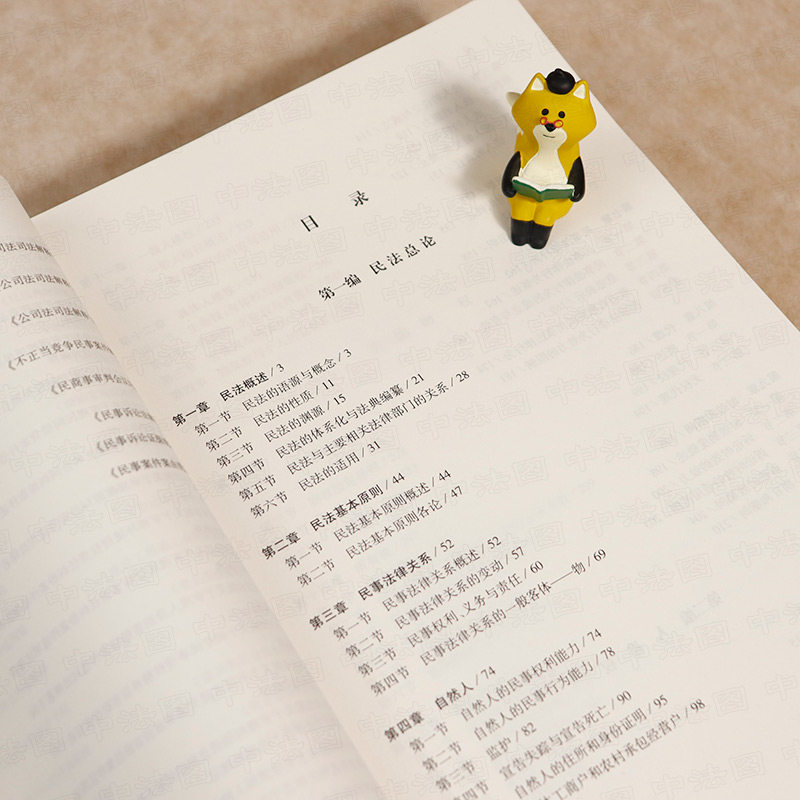 公司法司法解
《公司法司法解
《公司法司法解
《不正当竞争民事案
《民商事审判会
《民事诉讼证
《民事诉讼
《民事案件案由
目 录
第一编 民法总论
第一章 民法概述 / 3
第一节 民法的语源与概念 / 3
第二节 民法的性质 / 11
第三节 民法的渊源 / 15
第四节 民法的体系化与法典编纂 / 21
第五节 民法与主要相关法律部门的关系 / 28
第六节 民法的适用 / 31
第二章 民法基本原则 / 44
第一节 民法基本原则概述 / 44
第二节 民法基本原则各论 / 47
第三章 民事法律关系 / 52
第一节 民事法律关系概述 / 52
第二节 民事法律关系的变动 / 57
第三节 民事权利、义务与责任 / 60
第四节 民事法律关系的一般客体——物 / 69
第四章 自然人 / 74
第一节 自然人的民事权利能力 / 74
第二节 自然人的民事行为能力 / 78
第三节 监护 / 82
第四节 宣告失踪与宣告死亡 / 90
自然人的住所和身份证明 / 95
工商户和农村承包经营户 / 98
中法图